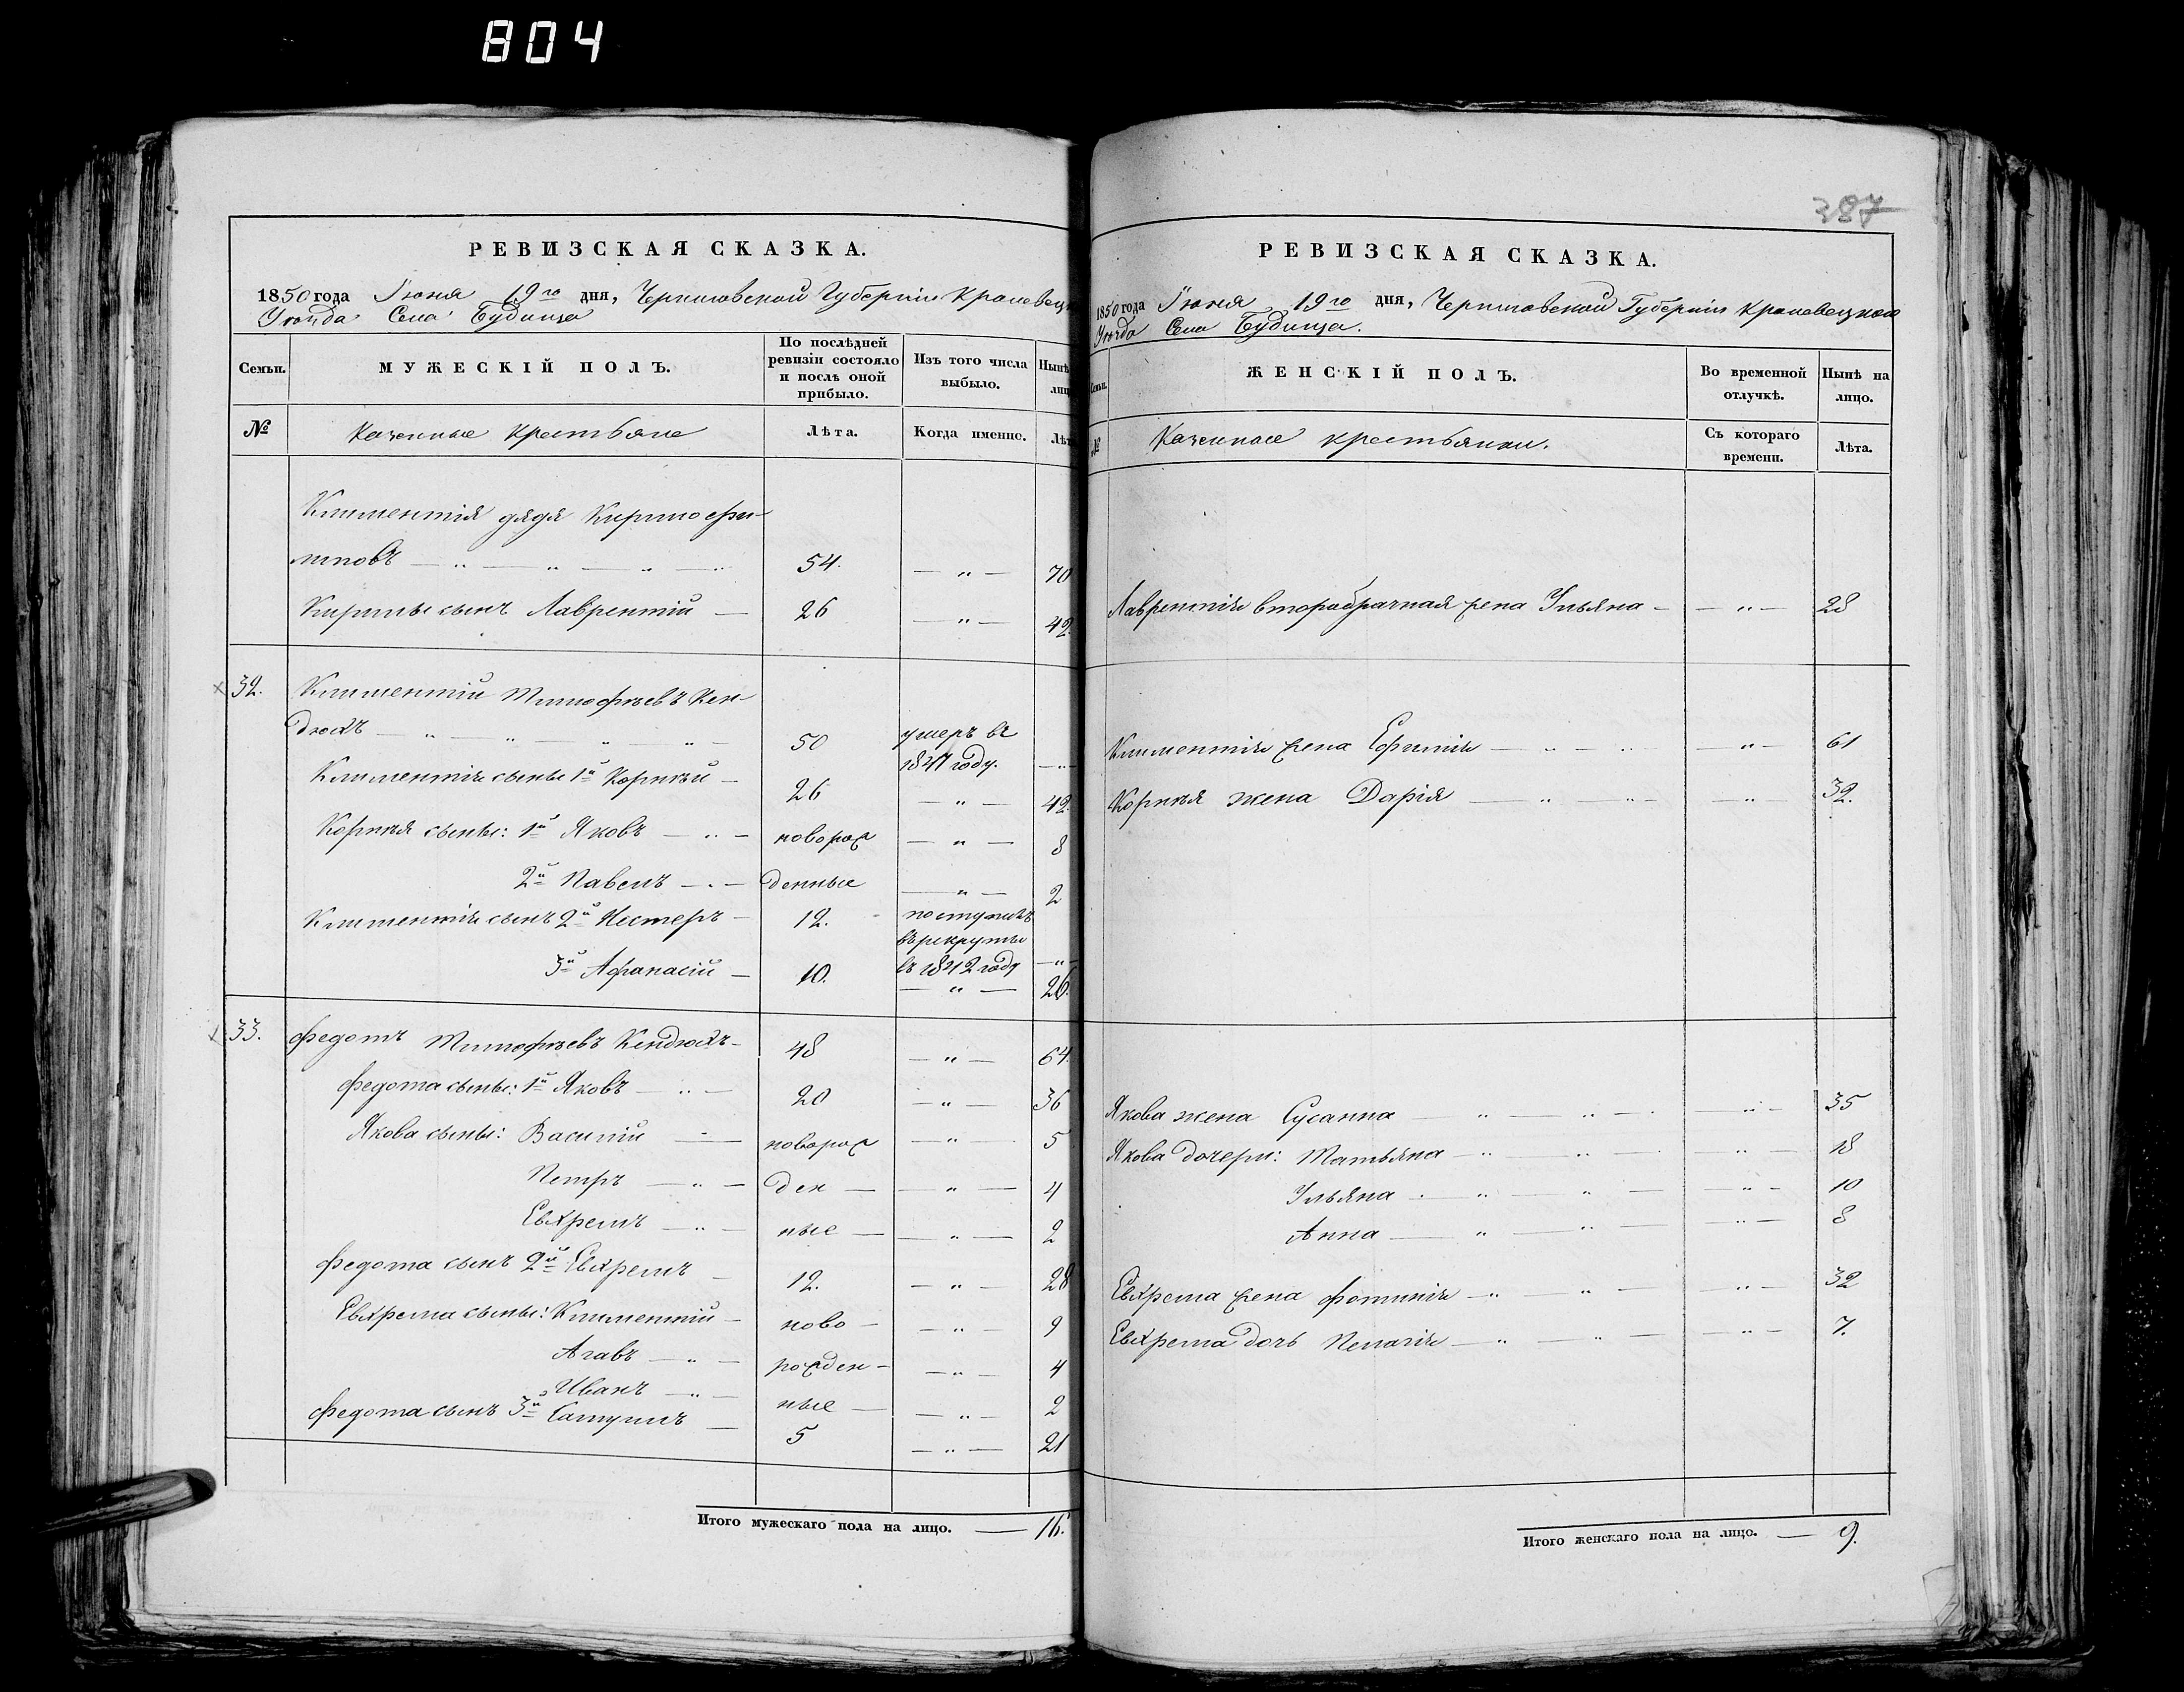 804
РЕВИЗСКАЯ СКАЗКА.
1850 года Іюня 19го дня, Черниговской Губерніи Кролевецк
Уѣзда Села Будища
Семьи.
МУЖЕСКІЙ ПОЛЪ.
По послѣдней
ревизіи состояло
и послѣ оной
прибыло.
Изъ того числа
выбыло.
Нынѣ
лиц
№
Казенные крестьяне
Лѣта.
Когда именно.
Лѣт
Климентія дядя Кирило Фи-
липовъ — „ — „ — „ — „ 54. — „ — 70
Кирилы сынъ Лаврентій — 26 — „ — 42.
32. Климентій Тимофѣевъ Кен-
дюхъ — „ — „ — „ — „ — 50 умеръ въ
1847 году. — „ —
Климентія сыны 1й Корнѣй — 26 — „ — 42.
Корнѣя сыны: 1й Яковъ — „ — новорож — „ — 8
2й Павелъ — „ — денные — „ — 2
Климентія сынъ 2й Нестеръ — 12. поступилъ
въ рекруты
3й Афанасій — 10. въ 1842 году — „ —
— „ — 26.
33. Федотъ Тимофѣевъ Кендюхъ — 48 — „ — 64.
Федота сыны: 1й Яковъ — „ — 20 — „ — 36
Якова сыны: Василій — новорож — „ — 5
Петръ — „ — ден — — „ — 4
Евхремъ — „ — ные — — „ — 2
Федота сынъ 2й Евхремъ — 12. — „ — 28
Евхрема сыны: Климентій — ново — — „ — 9
Агавъ — „ — рожден — — „ — 4
Иванъ — „ — ные — — „ — 2
Федота сынъ 3й — 5 — „ — 21
Итого мужескаго пола на лицо. — 16.
387
РЕВИЗСКАЯ СКАЗКА.
1850 года Іюня 19го дня, Черниговской Губерніи Кролевецкого
Уѣзда Села Будища.
Семьи.
ЖЕНСКІЙ ПОЛЪ.
Во временной
отлучкѣ.
Нынѣ на
лицо.
№
Казенные крестьянки.
Съ котораго
времени.
Лѣта.
Лаврентія второбрачная жена Ульяна — — „ — 28
Климентія жена Ефимія — „ — „ — „ — 61
Корнѣя жена Дарія — „ — „ — — „ 32.
Якова жена Сусанна „ — „ — — „ — 35
Якова дочери: Татьяна — „ — „ — „ — 18
Ульяна „ — „ — — „ — 10
Анна — „ — „ — — „ — 8
Евхрема жена Фотинія — „ — „ — — „ — 32
Евхрема дочь Пелагія — „ — „ — — „ — 7.
Итого женскаго пола на лицо. — 9.